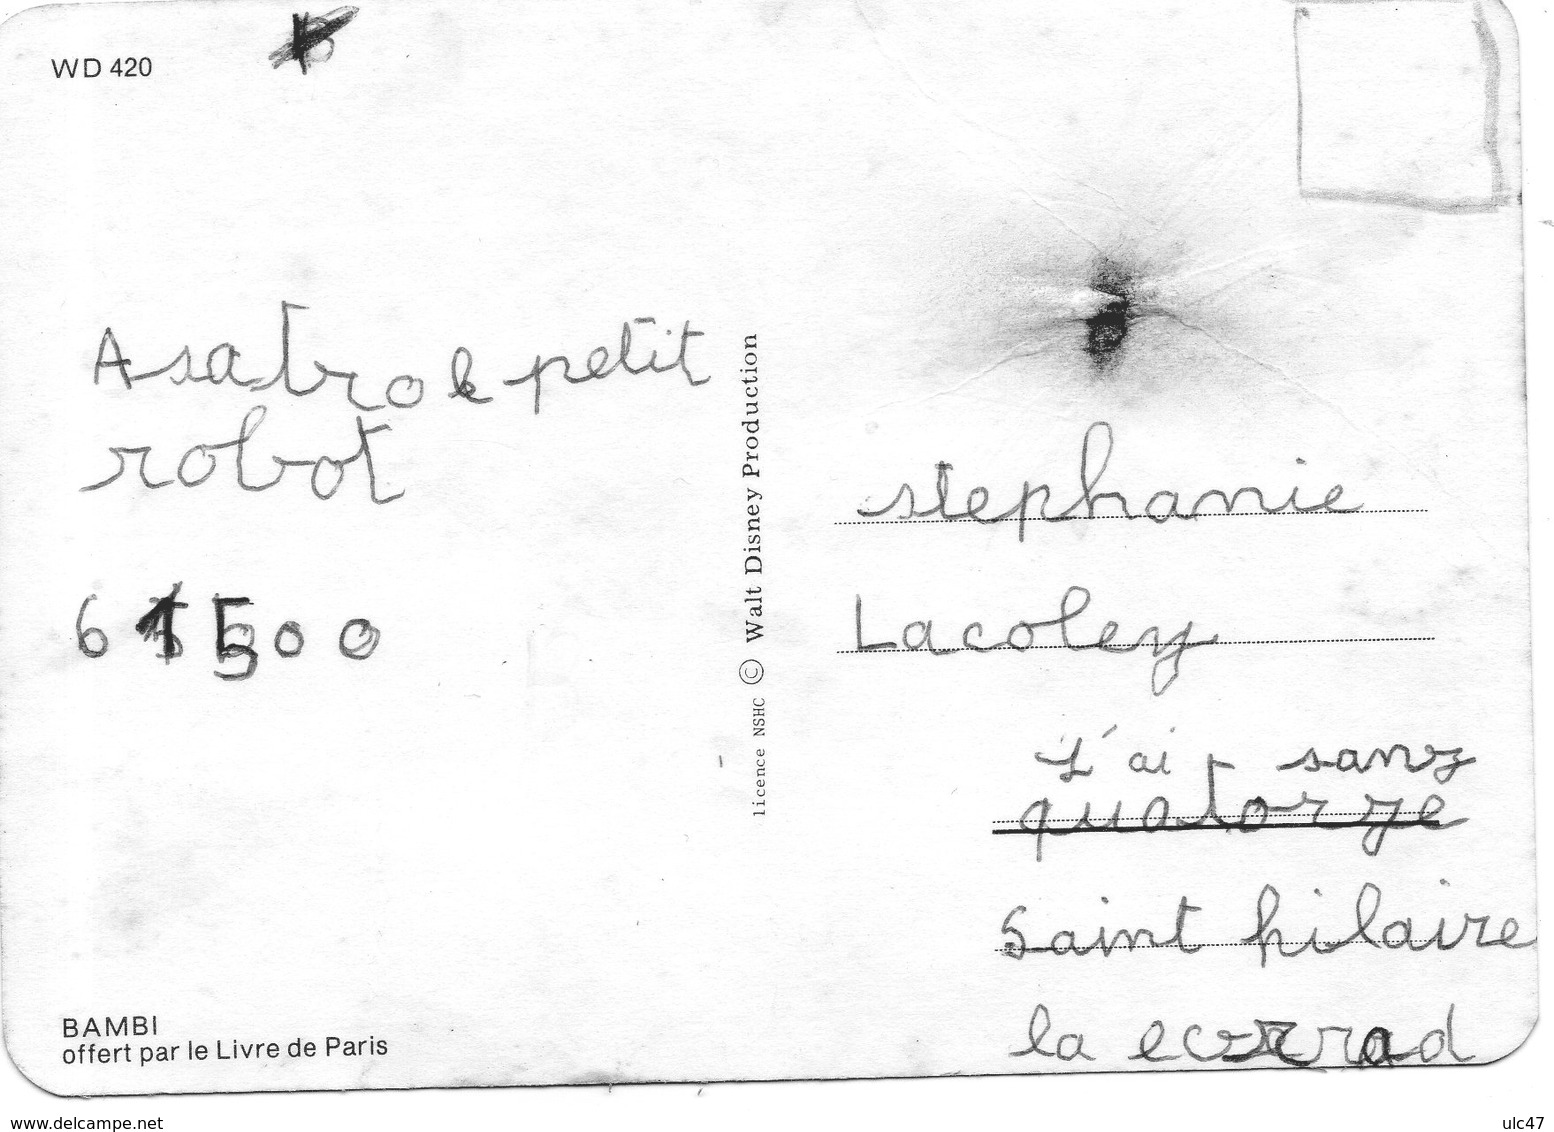 WD 420
Asatro le petit
robot
61500
BAMBI
offert par le Livre de Paris
licence NSHC © Walt Disney Production
stephanie
Lacoley
J'ai sanz
quatorze
Saint hilaire
la
www.delcampe.net
ulc47